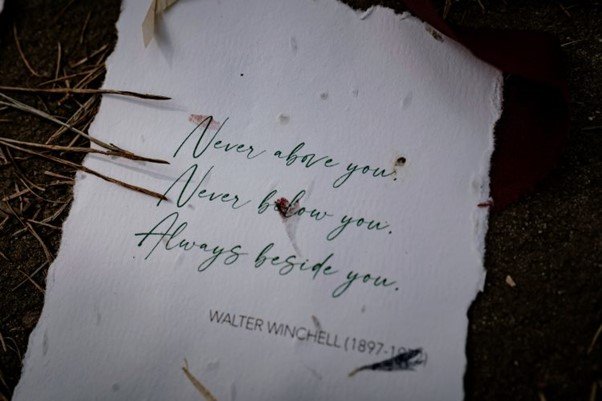 Never above you.
Never below you.
Always beside you.
WALTER WINCHELL (1897-19